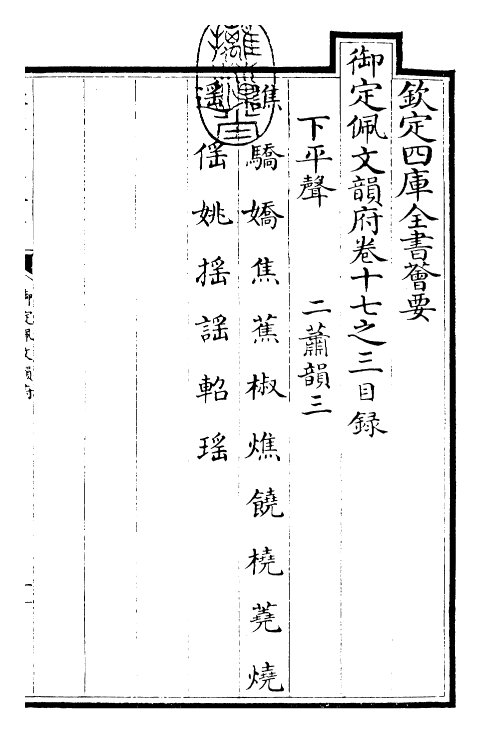 欽定四庫全書薈要
御定佩文韻府卷十七之三目録
下平聲　二蕭韻三
譙驕嬌焦蕉椒燋饒橈蕘燒
遥傜姚揺謡軺瑶
御定佩文韻府